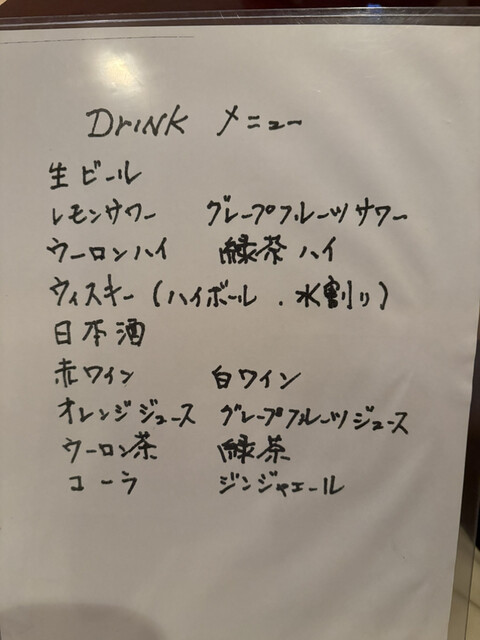 DRINK メニュー
生ビール
レモンサワー グレープフルーツサワー
ウーロンハイ 緑茶ハイ
ウィスキー (ハイボール . 水割り)
日本酒
赤ワイン 白ワイン
オレンジジュース グレープフルーツジュース
ウーロン茶 緑茶
コーラ ジンジャエール